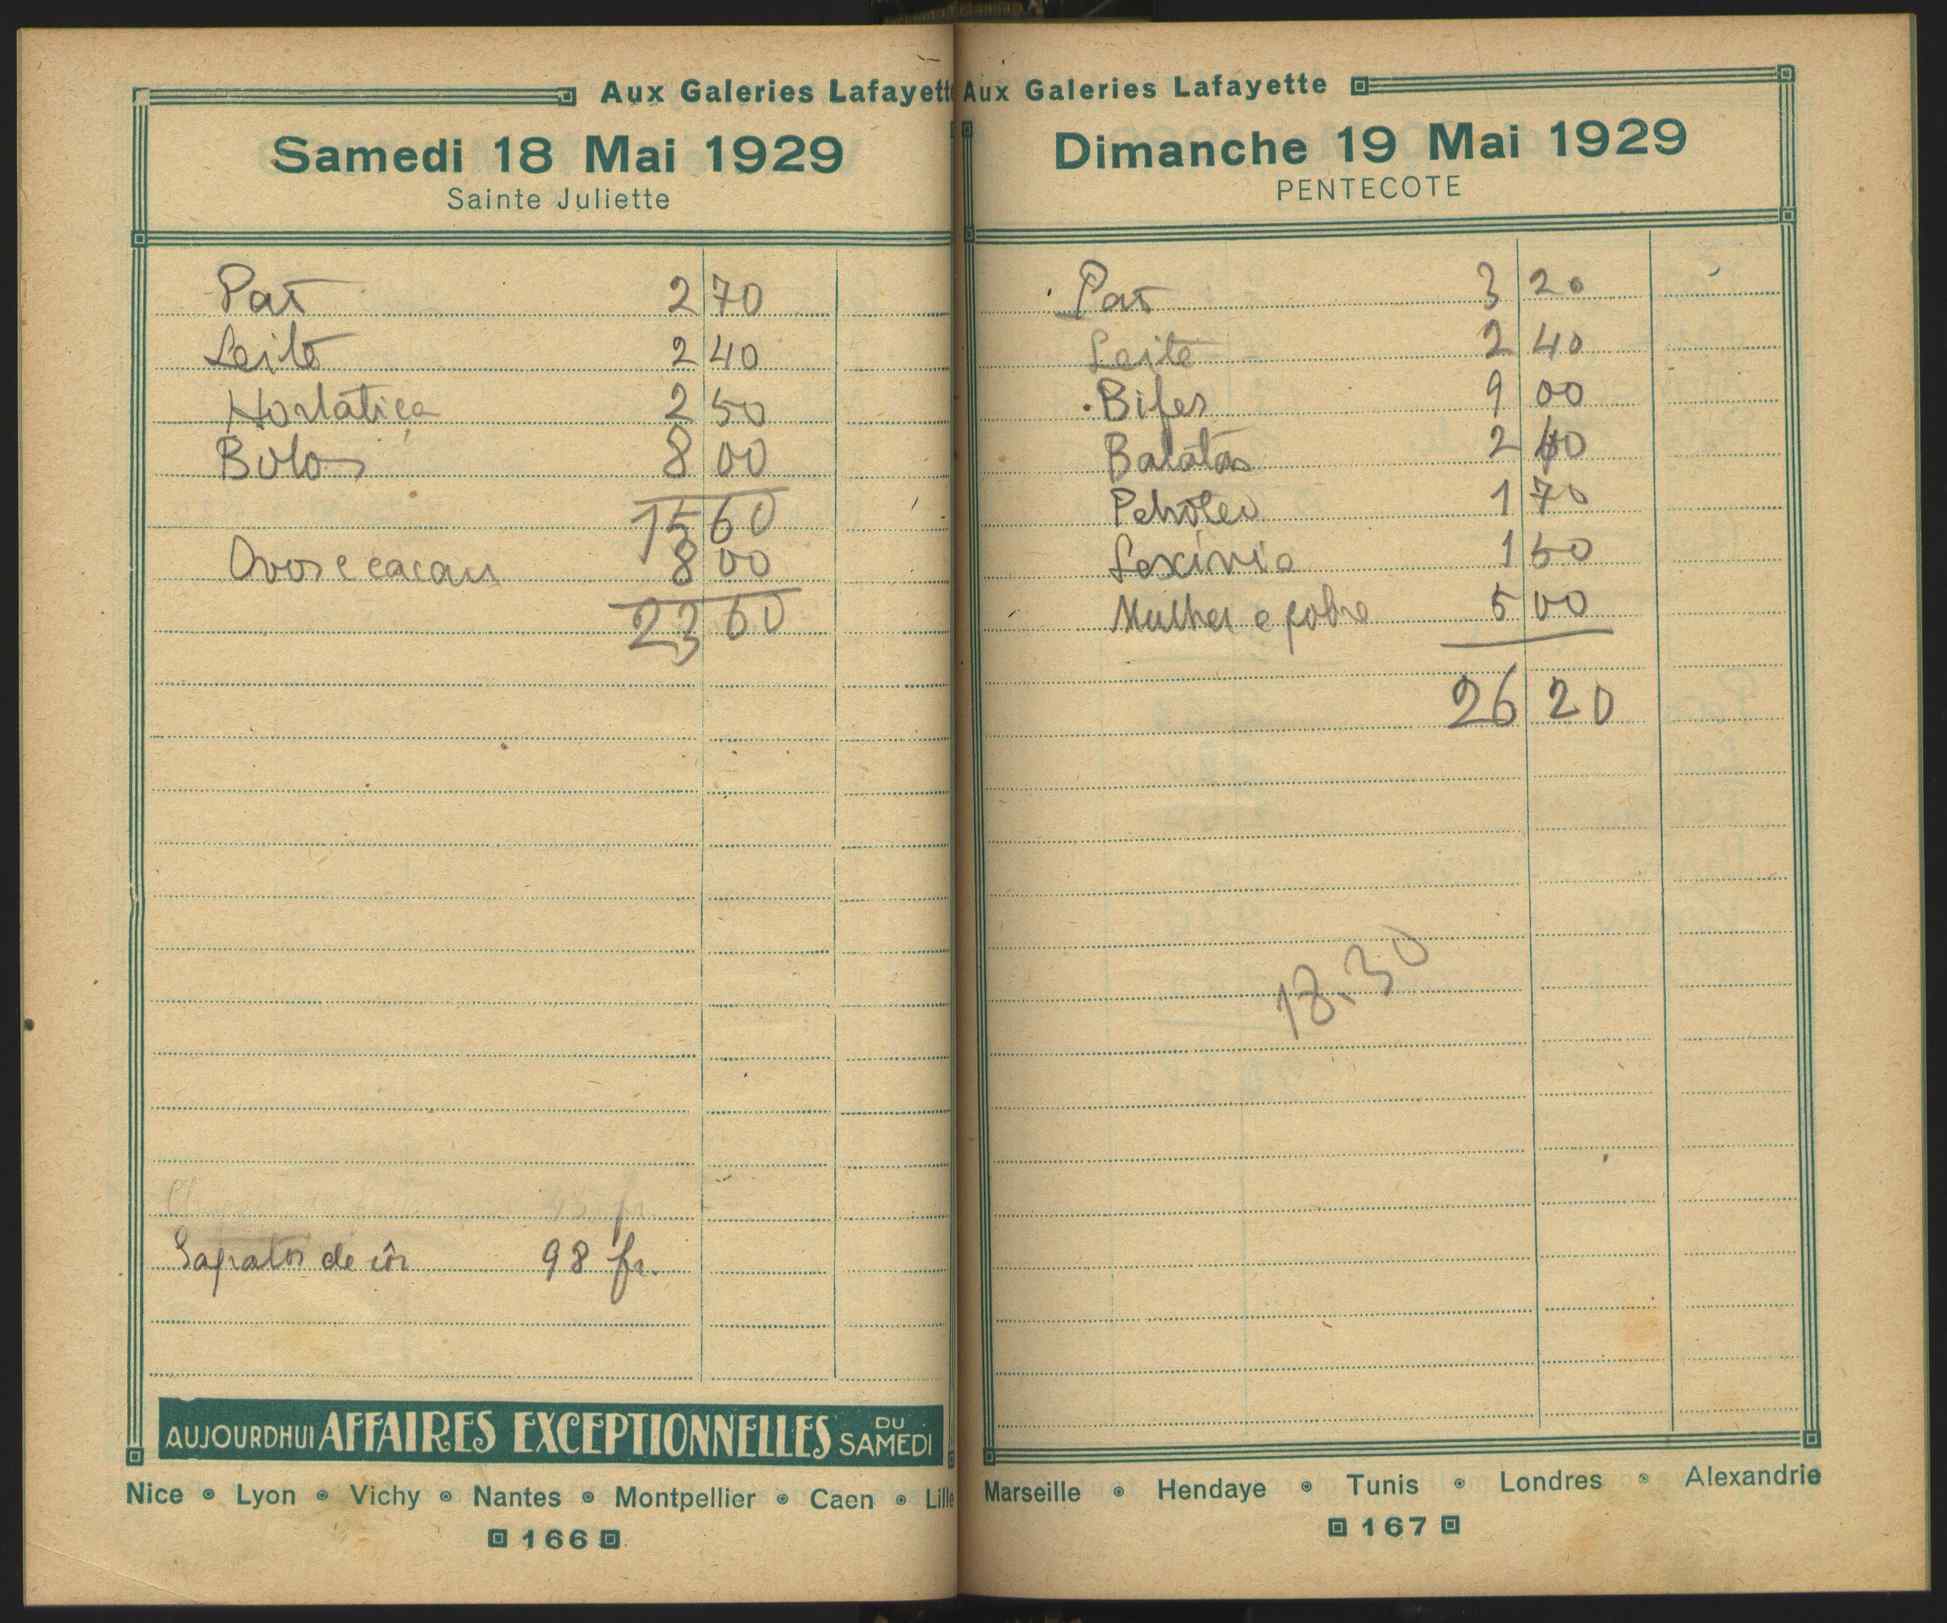 Aux Galeries Lafayett
Samedi 18 Mai 1929
Sainte Juliette
Pão 2 70
Leite 2 40
Hortaliça 2 50
Bolos 8 00
15 60
Ovos e cacau 8 00
23 60
Sapatos de côr 98 fr.
AUJOURDHUI AFFAIRES EXCEPTIONNELLES DU SAMEDI
Nice • Lyon • Vichy • Nantes • Montpellier • Caen • Lille
166
Aux Galeries Lafayette
Dimanche 19 Mai 1929
PENTECOTE
Pão 3 20
Leite 2 40
Bifes 9 00
Batatas 2 40
Petroleo 1 70
Lexivia 1 50
Mulher e pobre 5 00
26 20
18.30
Marseille • Hendaye • Tunis • Londres • Alexandrie
167